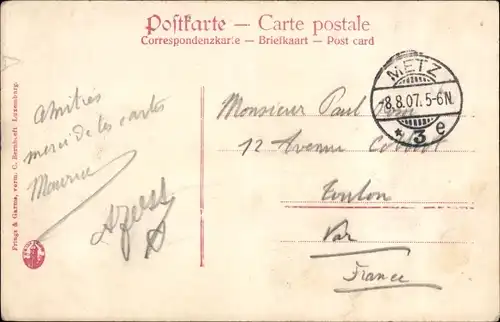 Postkarte — Carte postale
Correspondenzkarte — Briefkaart — Post card
METZ
-8.8.07. 5-6N.
* 3 e
Amitiés
merci de tes cartes
Maurice
Monsieur Paul
12 Avenue Colbert
Toulon
Var
France
Prings & Garms, vorm. C. Bernhoft Luxemburg.